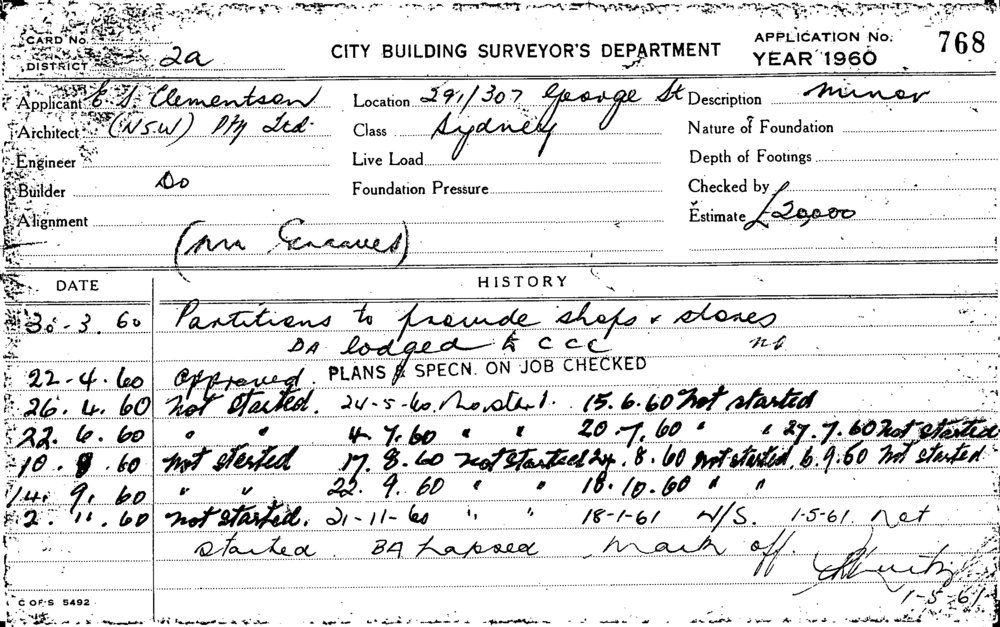 CARD No.
DISTRICT 2a
CITY BUILDING SURVEYOR'S DEPARTMENT
APPLICATION No. 768
YEAR 1960
Applicant E S Clementson
Location 291/307 George St
Description Minor
Architect (NSW) Pty Ltd.
Class Sydney
Nature of Foundation
Engineer
Live Load
Depth of Footings
Builder Do
Foundation Pressure
Checked by
Alignment
Estimate £20,000
(Mr Greaves)
DATE HISTORY
30-3.60 Partitions to provide shops & stores
DA lodged to CCC
22-4.60 Approved. PLANS & SPECN. ON JOB CHECKED
26.4.60 Not started. 24-5-60. No start. 15.6.60 Not started
22.6.60 " " 4.7.60 " " 20.7.60 " " 27.7.60 Not started
10.8.60 Not started 17.8.60 Not started 24.8.60 Not started. 6.9.60 Not started
14.9.60 " " 22.9.60 " " 18.10.60 " "
2.11.60 Not started. 21-11-60 " " 18-1-61 N/S. 1-5-61. Not
started. BA Lapsed Mark off.
1-5-61
C OF S 5492